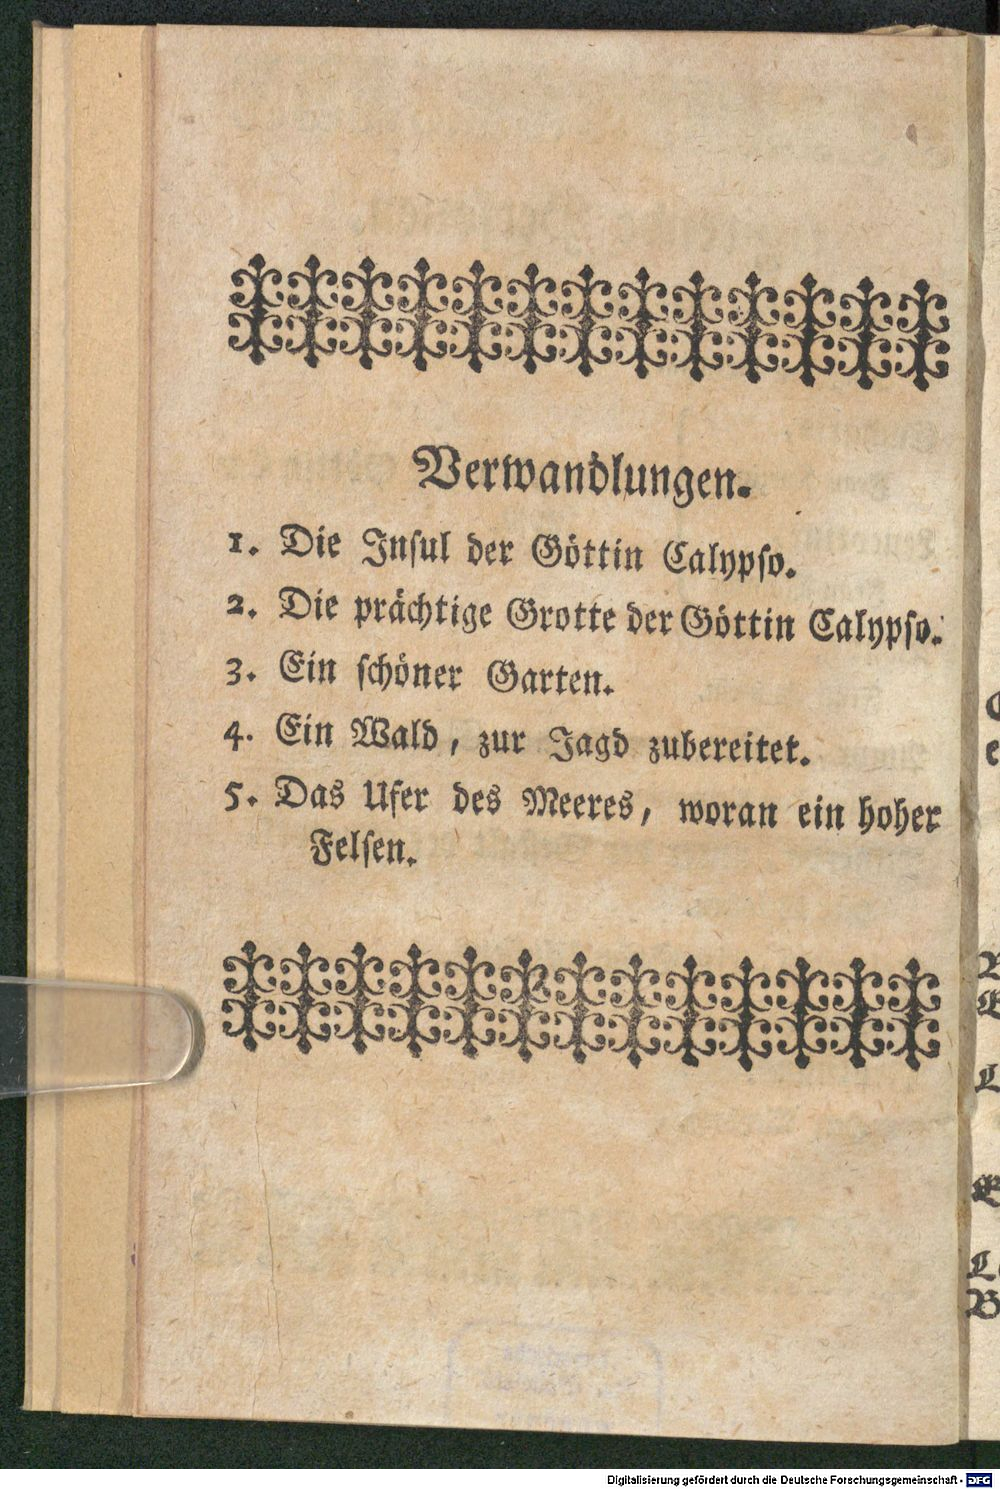 Verwandlungen.
1. Die Insul der Göttin Calypso.
2. Die prächtige Grotte der Göttin Calypso.
3. Ein schöner Garten.
4. Ein Wald, zur Jagd zubereitet.
5. Das Ufer des Meeres, woran ein hoher
Felsen.
Digitalisierung gefördert durch die Deutsche Forschungsgemeinschaft - DFG